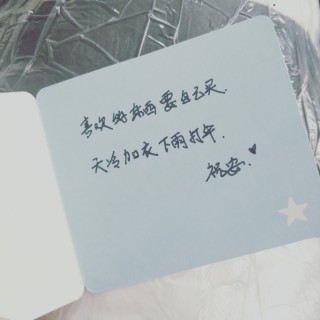 喜欢的东西要自己买.
天冷加衣下雨打伞.
祝安.♥